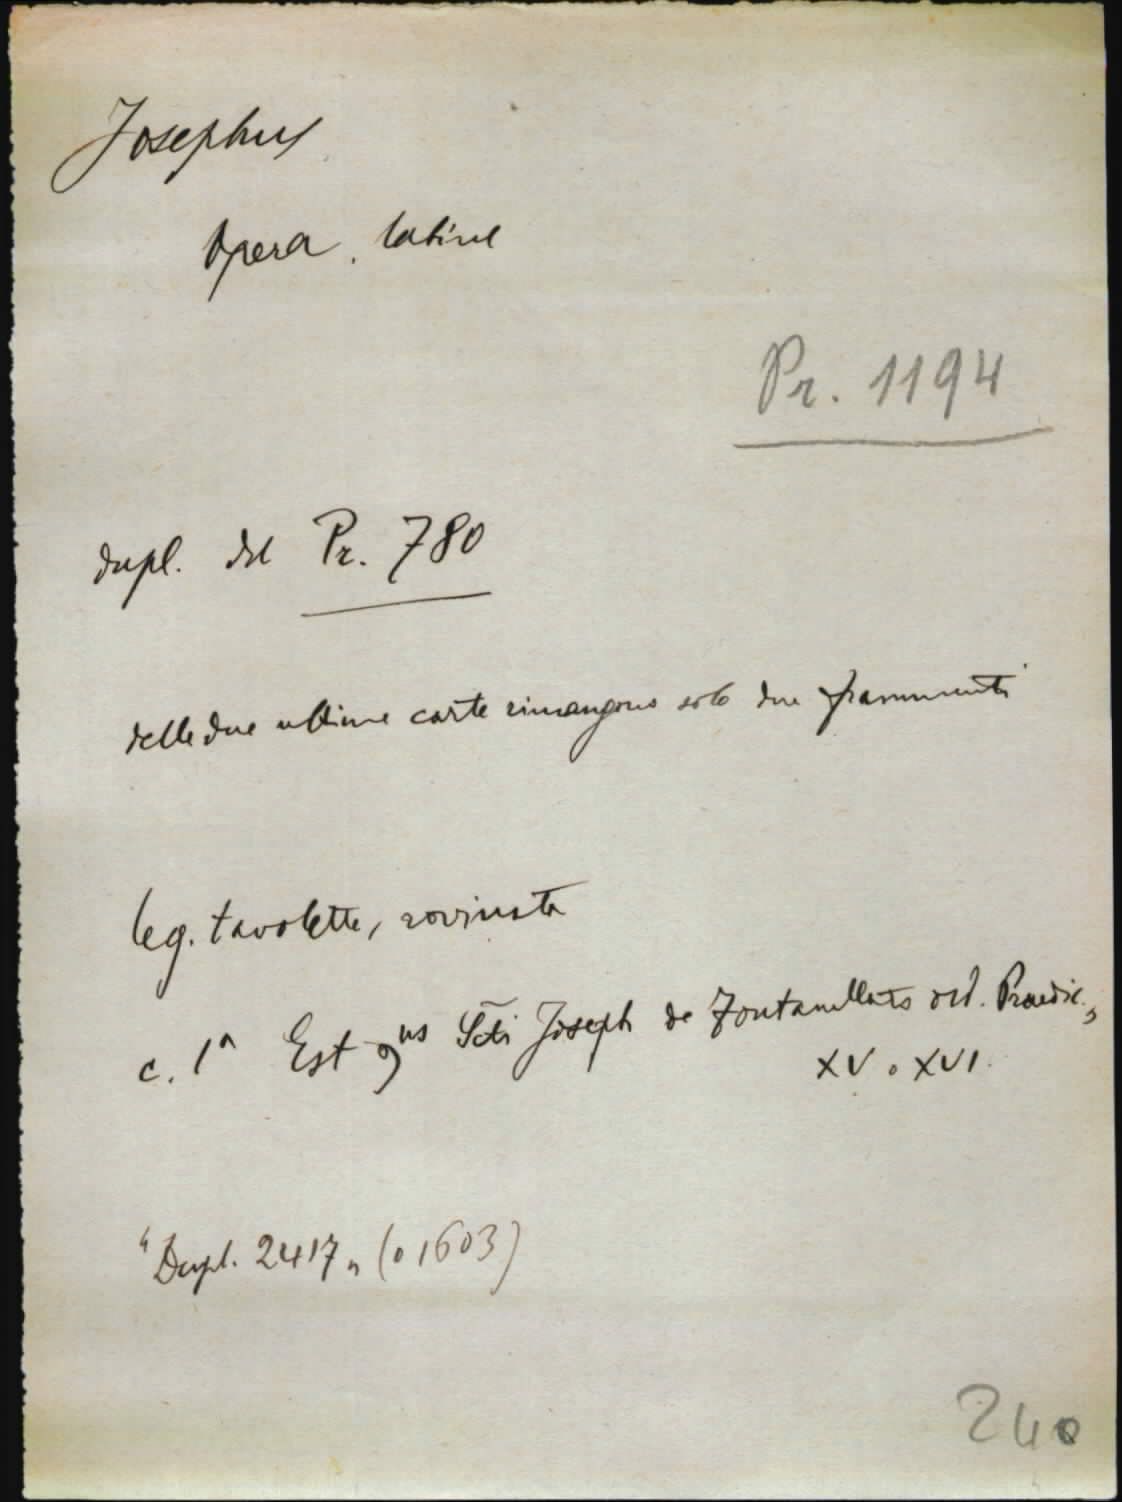 Josephus
Opera. latine
Pr. 1194
dupl. del Pr. 780
delle due ultime carte rimangono solo due frammenti
leg. tavolette, rovinata
c. 1ª Est 9us Scti Joseph de Fontanellato ord. Praedic.„
XV o XVI.
“Dupl. 2417„ (o 1603)
240